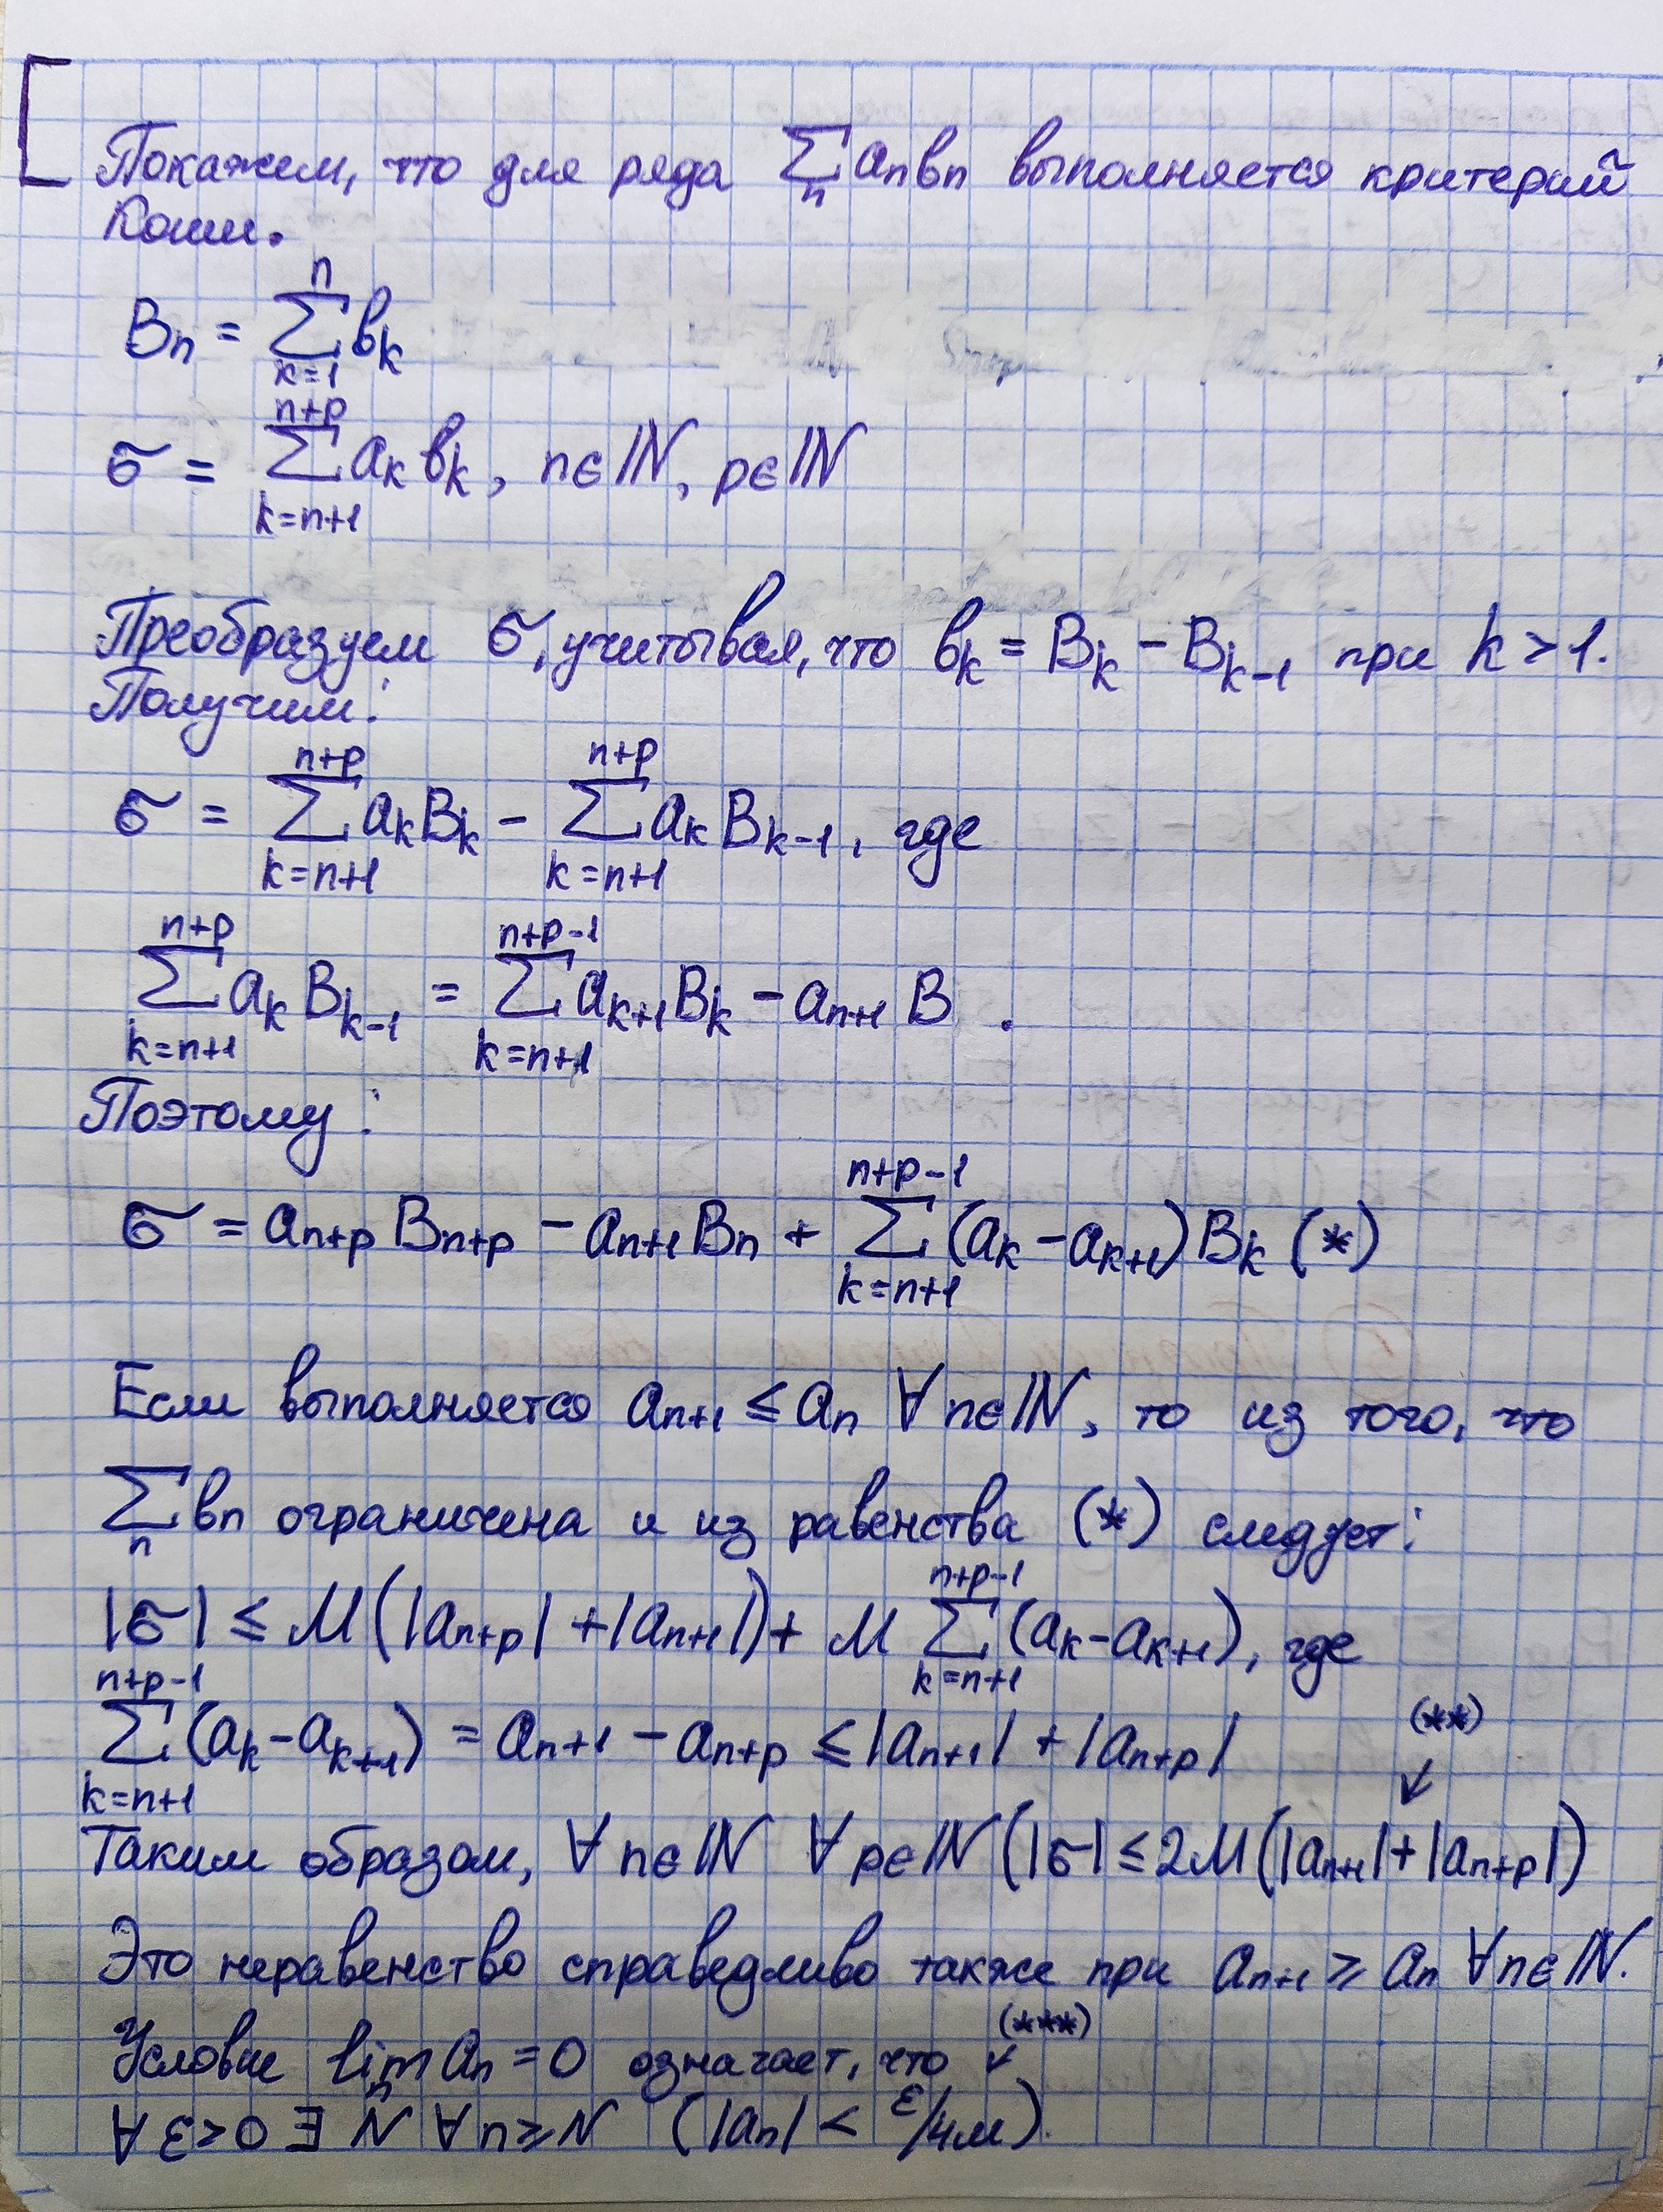 Покажем, что для ряда ∑_n aₙbₙ выполняется критерий
Коши.
Bₙ = ∑_{k=1}^{n} b_k
σ = ∑_{k=n+1}^{n+p} a_k b_k, n∈ℕ, p∈ℕ
Преобразуем σ, учитывая, что b_k = B_k − B_{k−1} при k > 1.
Получим:
σ = ∑_{k=n+1}^{n+p} a_k B_k − ∑_{k=n+1}^{n+p} a_k B_{k−1}, где
∑_{k=n+1}^{n+p} a_k B_{k−1} = ∑_{k=n+1}^{n+p−1} a_{k+1} B_k − a_{n+1} B .
Поэтому:
σ = a_{n+p} B_{n+p} − a_{n+1} B_n + ∑_{k=n+1}^{n+p−1} (a_k − a_{k+1}) B_k (*)
Если выполняется a_{n+1} ≤ a_n ∀ n∈ℕ, то из того, что
∑_n b_n ограничена и из равенства (*) следует:
|σ| ≤ M(|a_{n+p}| + |a_{n+1}|) + M ∑_{k=n+1}^{n+p−1} (a_k − a_{k+1}), где
∑_{k=n+1}^{n+p−1} (a_k − a_{k+1}) = a_{n+1} − a_{n+p} ≤ |a_{n+1}| + |a_{n+p}|
(**)
↓
Таким образом, ∀ n∈ℕ ∀ p∈ℕ (|σ| ≤ 2M(|a_{n+1}| + |a_{n+p}|)
Это неравенство справедливо также при a_{n+1} ≥ a_n ∀ n∈ℕ.
(***)
Условие lim_n a_n = 0 означает, что ↓
∀ ε>0 ∃ N ∀ n≥N (|a_n| < ε/4M).